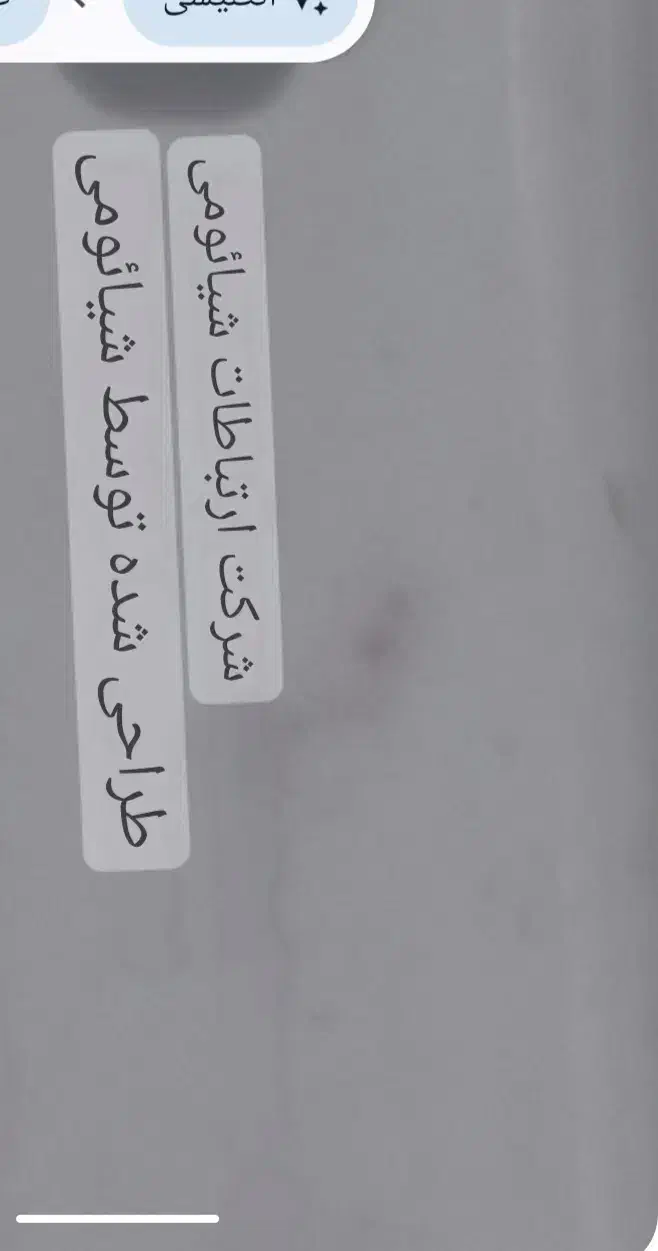 انگلیسی
طراحی شده توسط شیائومی
شرکت ارتباطات شیائومی